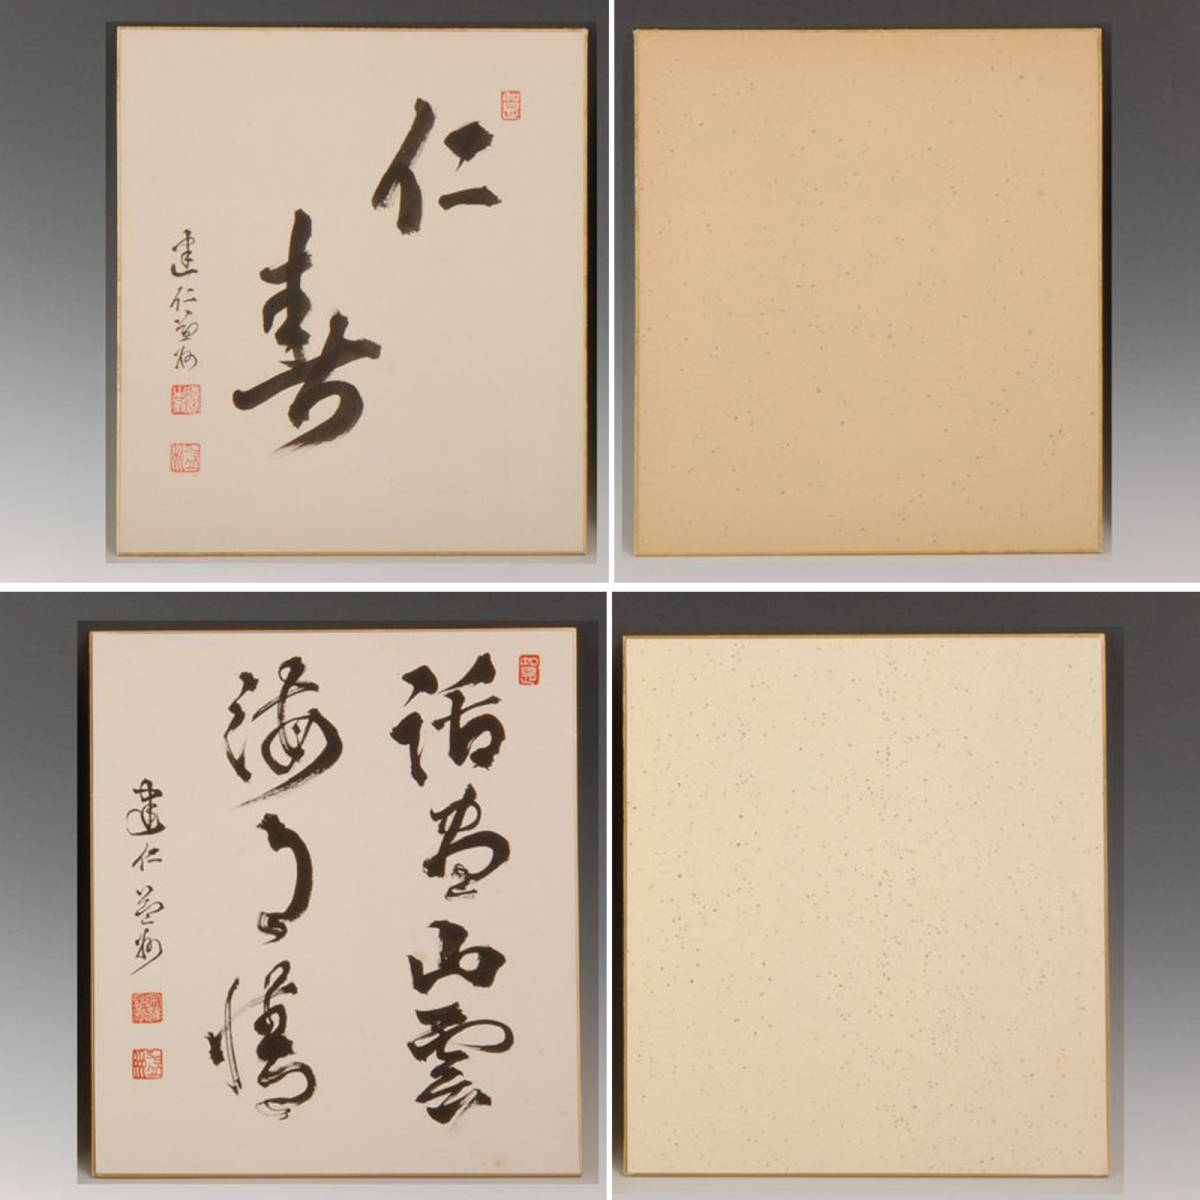 仁
寿
建仁益州
話尽山雲
海月情
建仁益州